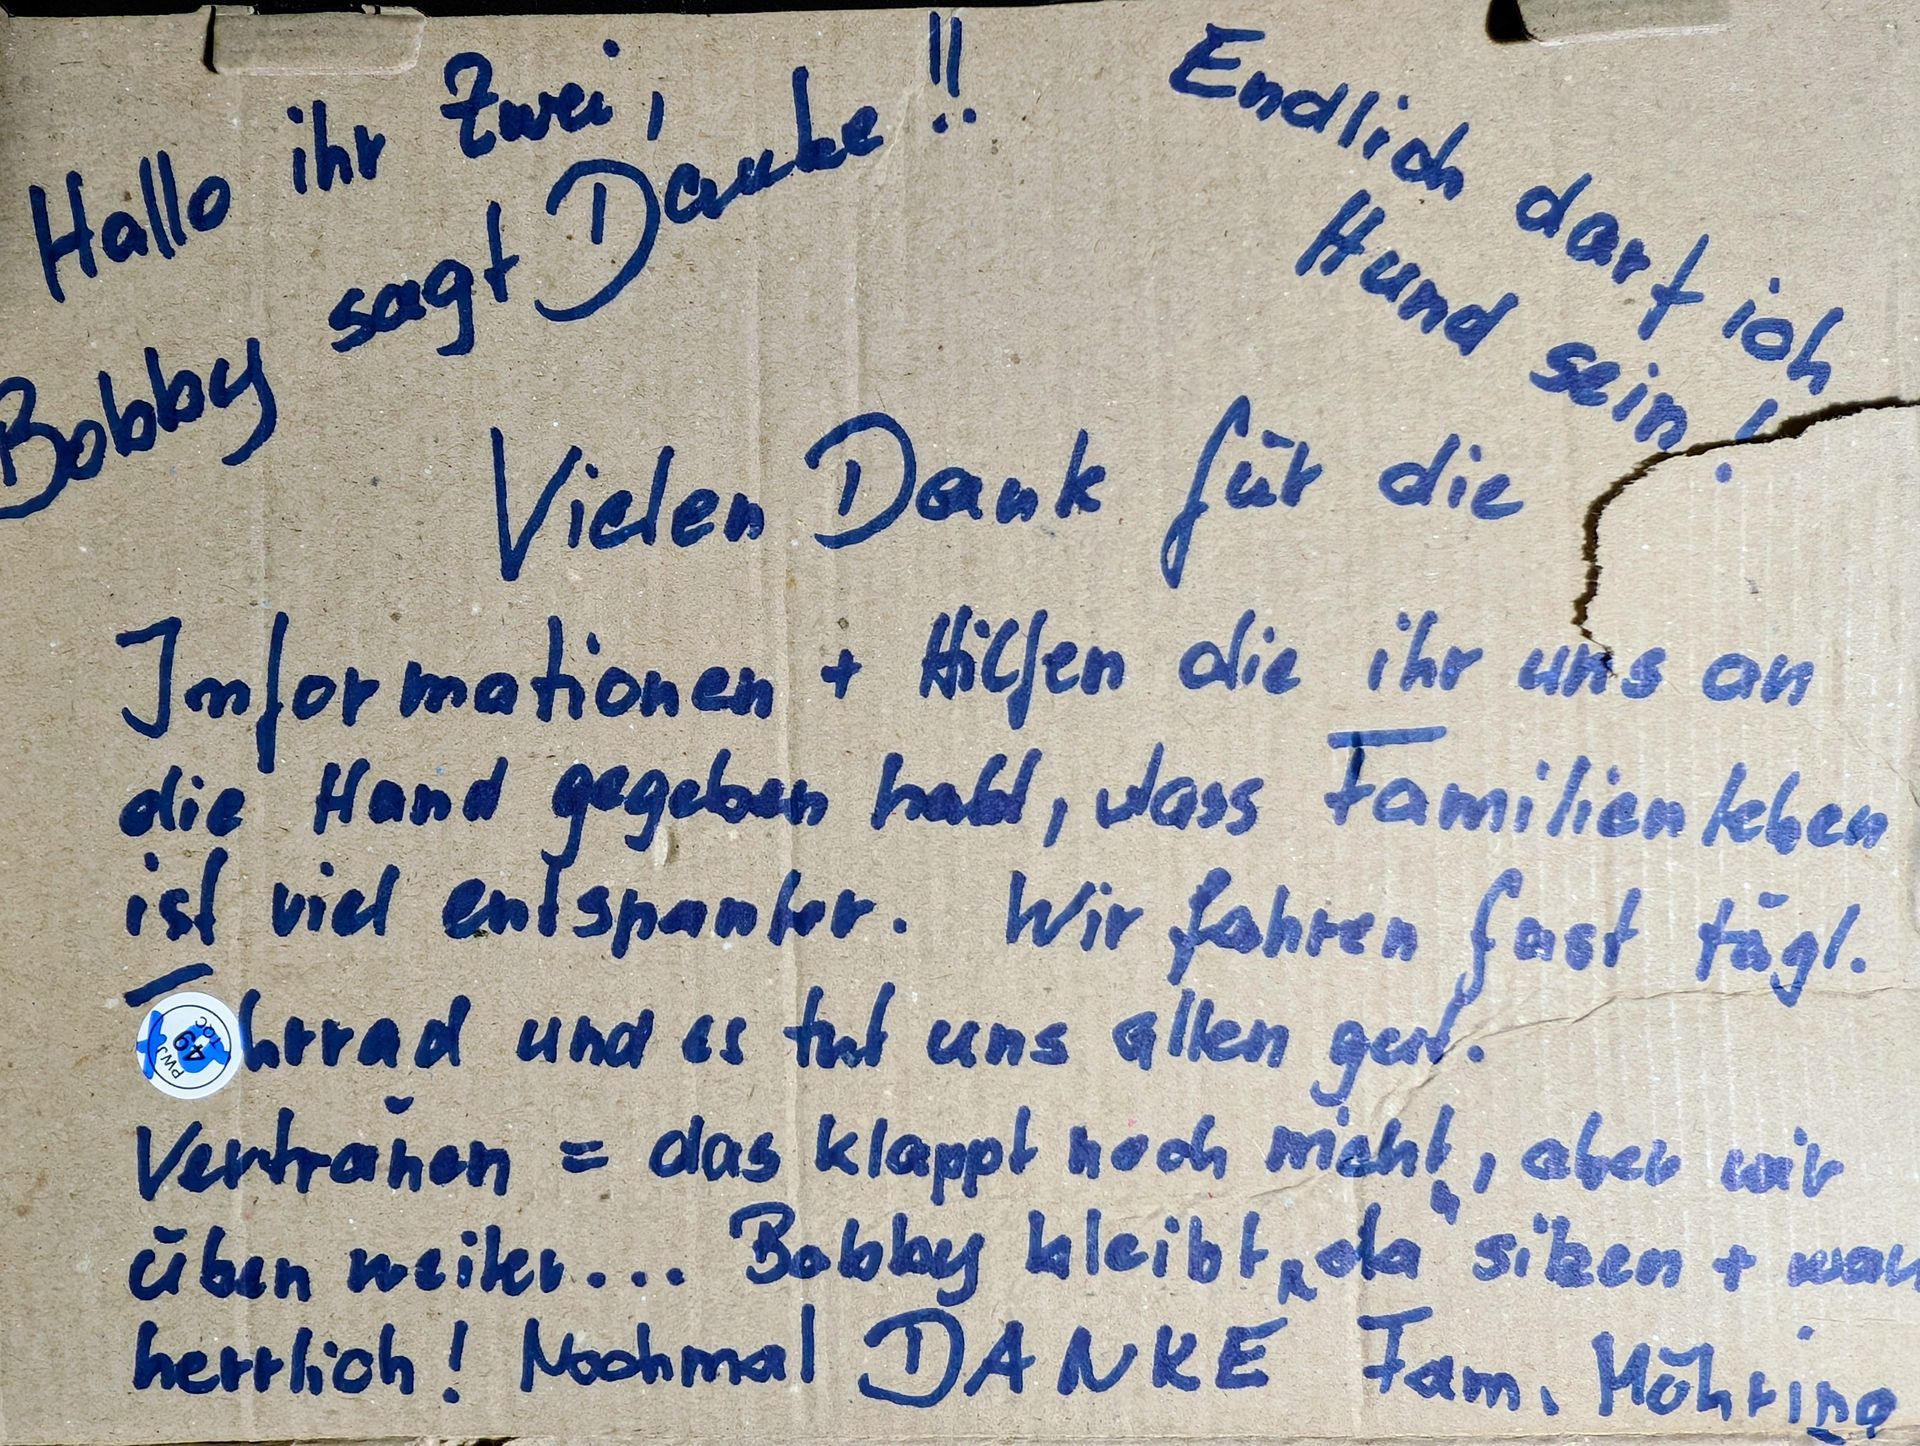 Hallo ihr Zwei,
Bobby sagt Danke!!
Endlich darf ich
Hund sein!
Vielen Dank für die
Informationen + Hilfen die ihr uns an
die Hand gegeben habt, dass Familienleben
ist viel entspanter. Wir fahren fast tägl.
hrrad und es tut uns allen gut.
PWJ 49 TQC
= das klappt noch nicht, aber wir
üben weiter... Bobby bleibt "da" sitzen +
herrlich! Nochmal DANKE Fam. Möhring